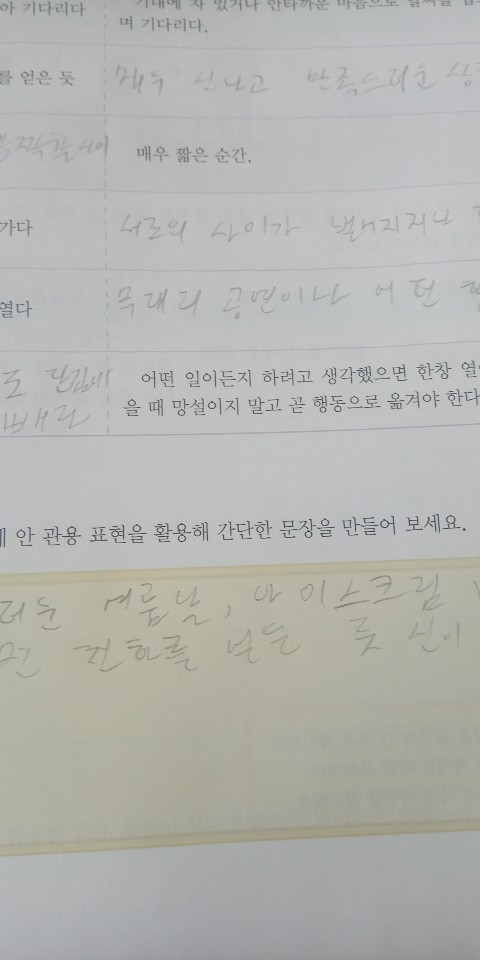 아 기다리다
기대에 차 있거나 안타까운 마음으로 날짜를
며 기다리다.
를 얻은 듯
매우 신나고 만족스러운 상
눈깜짝할 사이
매우 짧은 순간.
가다
서로의 사이가 벌어지거나
열다
무대의 공연이나 어떤
도 단김에
빼라
어떤 일이든지 하려고 생각했으면 한창 열
을 때 망설이지 말고 곧 행동으로 옮겨야 한다
안 관용 표현을 활용해 간단한 문장을 만들어 보세요.
더운 여름날, 아이스크림
천하를 얻은 듯 신이